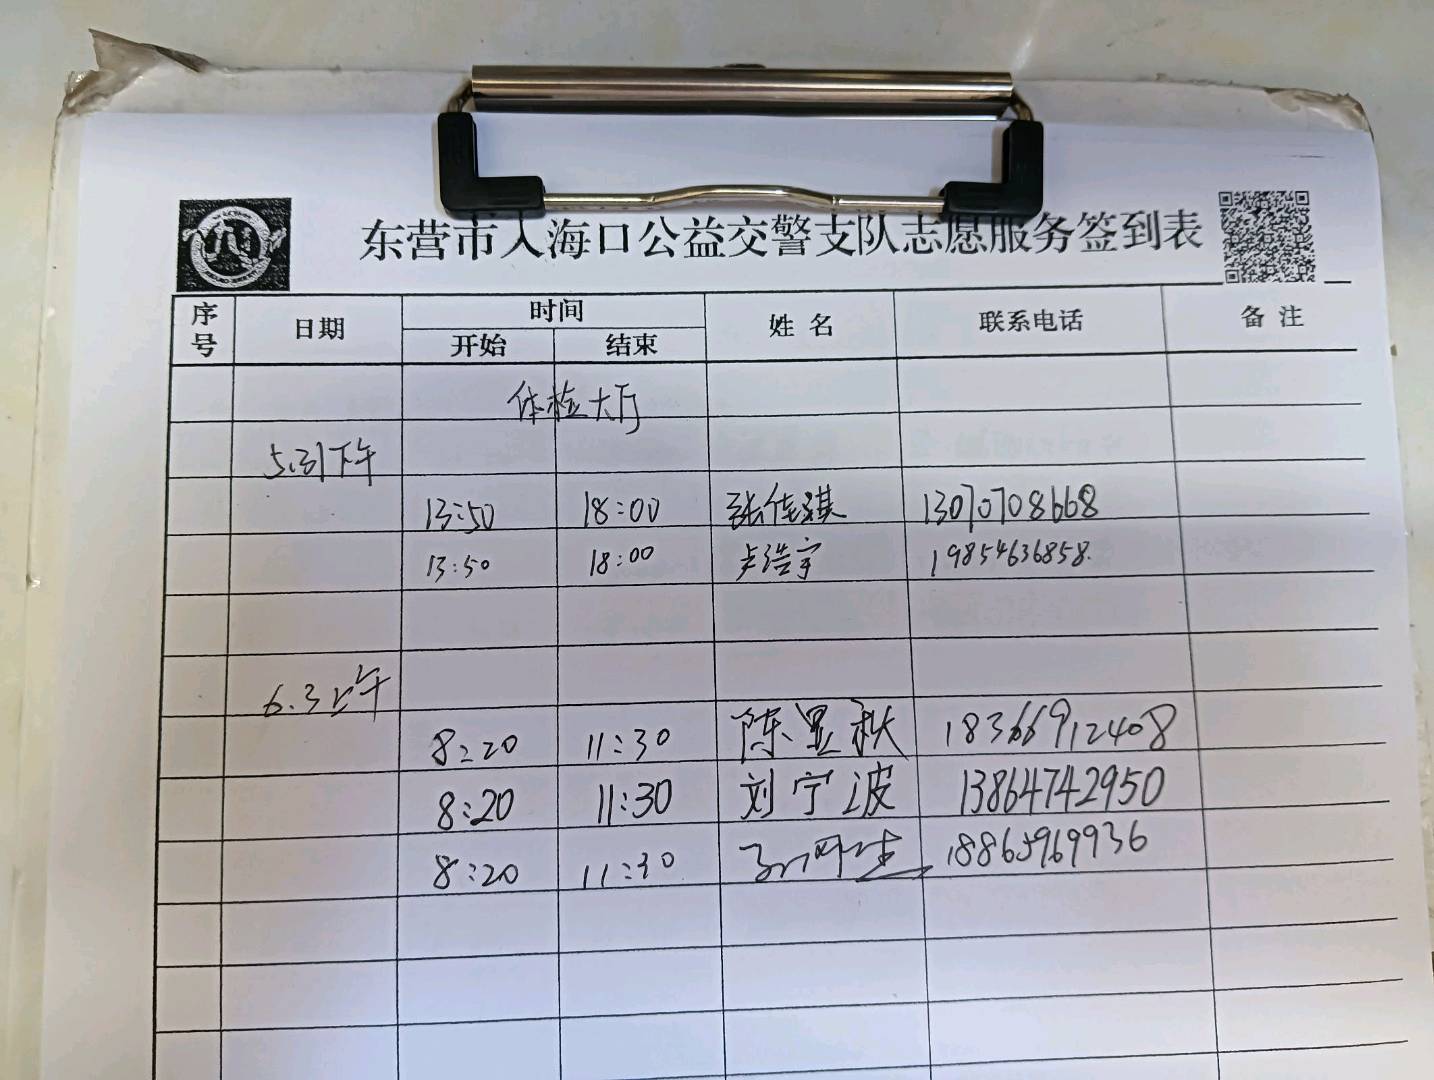 东营市入海口公益交警支队志愿服务签到表
序号 日期 时间 姓名 联系电话 备注
开始 结束
体检大厅
5.31下午
13:50 18:00 张佳琪 13070708668
13:50 18:00 卢浩宇 19854636858.
6.3上午
8:20 11:30 陈显秋 18366912408
8:20 11:30 刘宁波 13864742950
8:20 11:30 18865969936